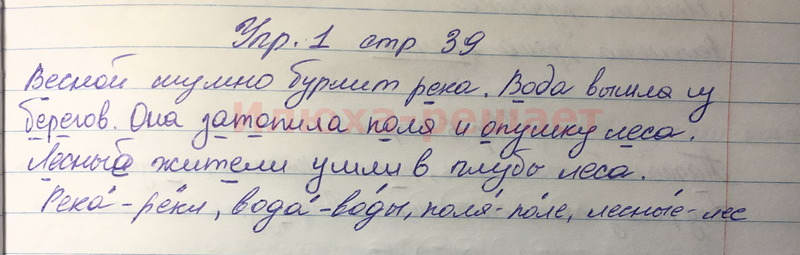 Упр. 1 стр 39
Весной шумно бурлит река. Вода вышла из
берегов. Она затопила поля и опушку леса.
Лесные жители ушли в глубь леса.
Река́ - ре́ки, вода́ - во́ды, поля́ - по́ле, лесны́е - лес
Илюха-решает